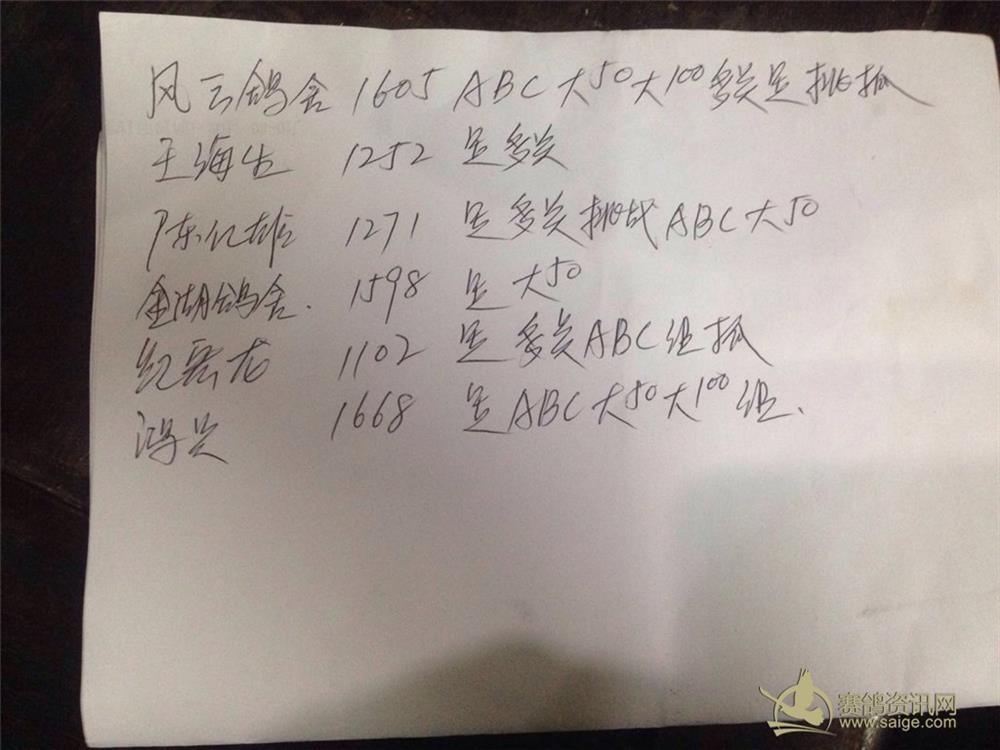 风云鸽舍 1605 ABC大50大100多关足挑抓
王海生 1252 足多关
陈亿雄 1271 足多关挑战ABC大50
金湖鸽舍. 1598 足大50
1102 足多关ABC组抓
鸿兴 1668 足ABC大50大100组.
赛鸽资讯网
www.saige.com